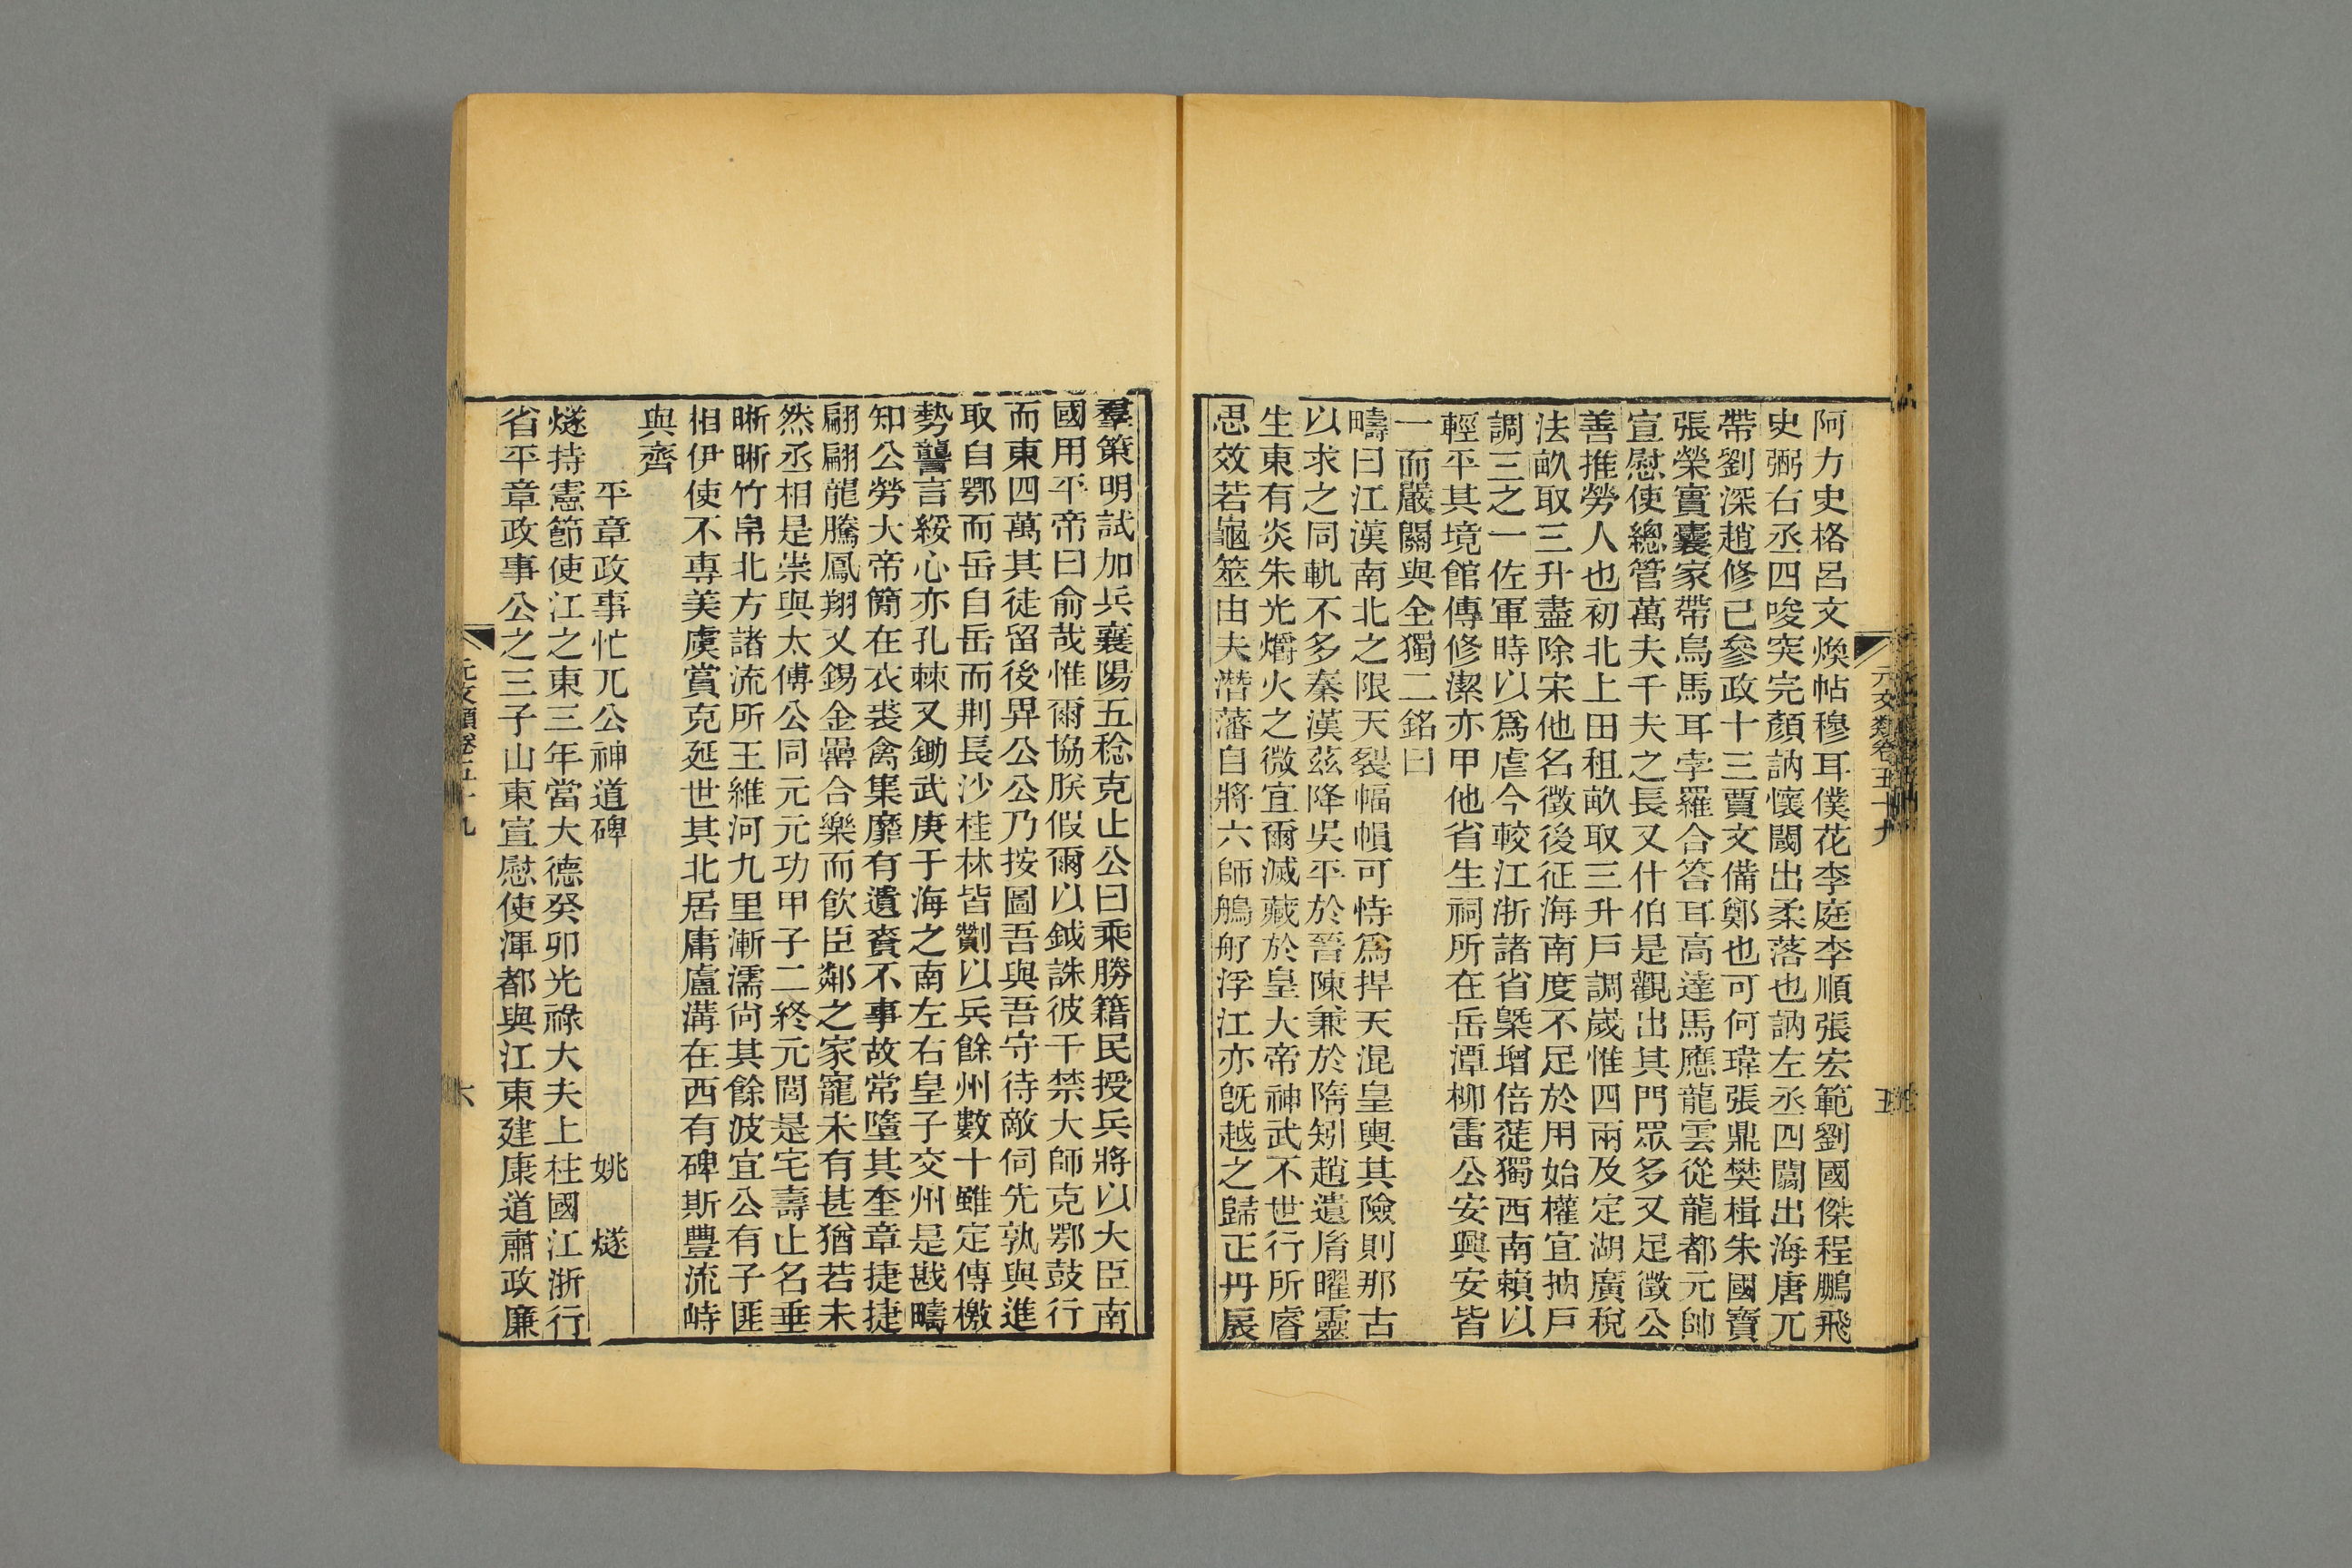 阿力史格呂文煥帖穆耳僕花李庭李順張宏範劉國傑程鵬飛
史弼右丞四唆突完顏訥懷閾出柔落也訥左丞四闊出海唐兀
帶劉深趙修己參政十三賈文備鄭也可何瑋張鼎樊楫朱國寶
張榮實囊家帶烏馬耳孛羅合答耳高達馬應龍雲從龍都元帥
宣慰使總管萬夫千夫之長又什伯是觀出其門眾多又足徵公
善推勞人也初北上田租畝取三升戶調嵗惟四兩及定湖廣稅
法畝取三升盡除宋他名徵後征海南度不足於用始權宜抽戶
調三之一佐軍時以爲虐今較江浙諸省槩增倍蓰獨西南賴以
輕平其境館傳修潔亦甲他省生祠所在岳潭柳雷公安興安皆
一而嚴闢與全獨二銘曰
疇曰江漢南北之限天裂幅幀可恃爲捍天混皇輿其險則那古
以求之同軌不多秦漢茲降吳平於晉陳兼於隋矧趙遺胤曜靈
生東有炎朱光爝火之微宜爾滅藏於皇大帝神武不世行所睿
思效若龜筮由夫潛藩自將六師鵃舠浮江亦旣越之歸正丹扆
元文類卷五十九
五
羣策明試加兵襄陽五稔克止公曰乘勝籍民授兵將以大臣南
國用平帝曰俞哉惟爾協朕假爾以鉞誅彼干禁大師克鄂鼓行
而東四萬其徒留後畀公公乃按圖吾與吾守待敵伺先孰與進
取自鄂而岳自岳而荆長沙桂林皆劗以兵餘州數十雖定傳檄
勢讋言綏心亦孔棘又鋤武庚于海之南左右皇子交州是戡疇
知公勞大帝簡在衣裘禽集靡有遺賚不事故常墮其奎章捷捷
翩翩龍騰鳳翔又錫金罍合樂而飲臣鄰之家寵未有甚猶若未
然丞相是崇與太傅公同元元功甲子二終元閭是宅壽止名垂
晣晣竹帛北方諸流所王維河九里漸濡尙其餘波宜公有子匪
相伊使不專美虞賞克延世其北居庸盧溝在西有碑斯豐流峙
與齊
平章政事忙兀公神道碑　姚　燧
燧持憲節使江之東三年當大德癸卯光祿大夫上柱國江浙行
省平章政事公之三子山東宣慰使渾都與江東建康道肅政廉
元文類卷五十九
六